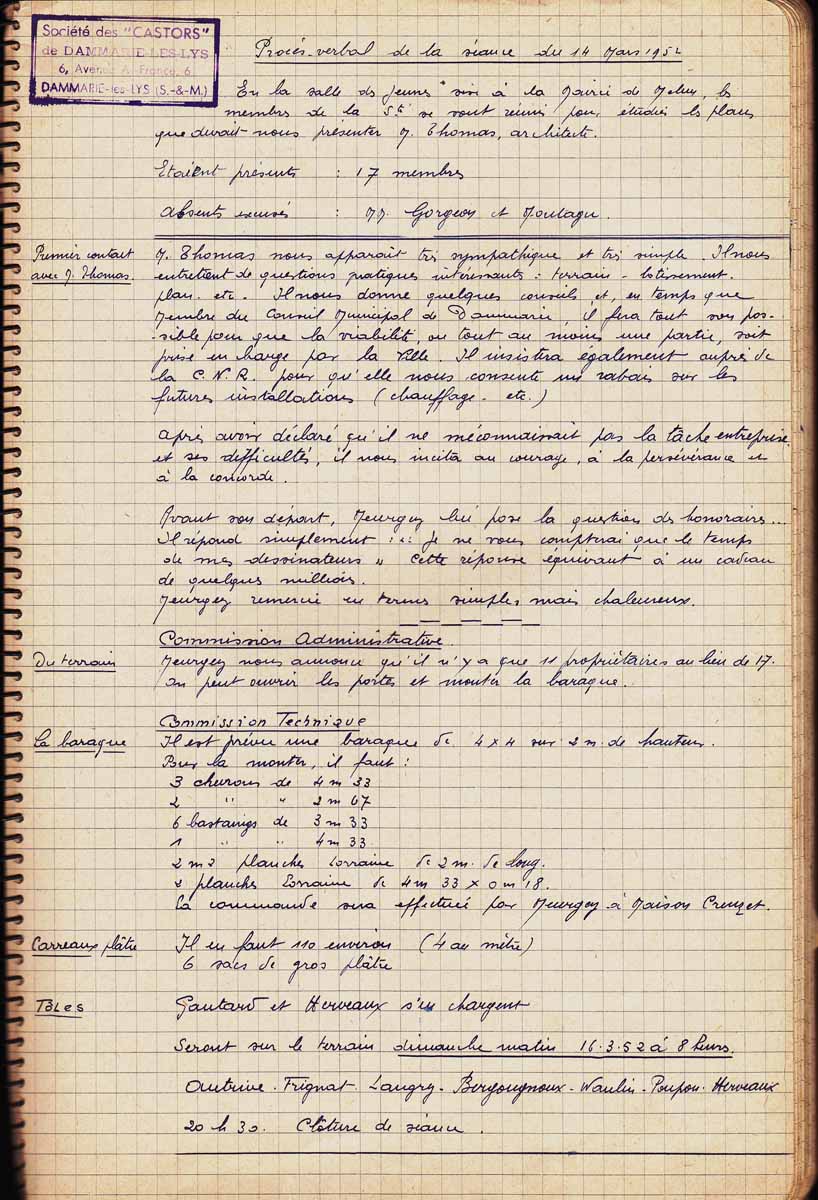 Société des "CASTORS"
de DAMMARIE-LES-LYS
6, Avenue A. France, 6
DAMMARIE-les-LYS (S.-&-M.)
Procès-verbal de la séance du 14 Mars 1952
En la salle des Jeunes sise à la Mairie de Melun, les
membres de la Sté se sont réunis pour étudier les plans
que devait nous présenter M. Thomas, architecte.
Etaient présents : 17 membres
Absents excusés : MM. Gorgeon et Montagu.
Premier contact
avec M. Thomas.
M. Thomas nous apparaît très sympathique et très simple. Il nous
entretient de questions pratiques intéressantes : terrain - lotissement.
plan. etc. Il nous donne quelques conseils et, en temps que
Membre du Conseil Municipal de Dammarie, il fera tout son pos-
-sible pour que la viabilité, ou tout au moins une partie, soit
prise en charge par la Ville. Il insistera également auprès de
la C.N.R. pour qu'elle nous consente un rabais sur les
futures installations (chauffage - etc.)
Après avoir déclaré qu'il ne méconnaissait pas la tâche entreprise
et ses difficultés, il nous incita au courage, à la persévérance et
à la concorde.
Avant son départ, Meurgey lui pose la question des honoraires...
Il répond simplement : " Je ne vous compterai que le temps
de mes dessinateurs " Cette réponse équivaut à un cadeau
de quelques millions.
Meurgey remercie en termes simples mais chaleureux.
Commission Administrative
Du terrain
Meurgey nous annonce qu'il n'y a que 11 propriétaires au lieu de 17.
On peut ouvrir les portes et monter la baraque.
Commission Technique
La baraque
Il est prévu une baraque de 4 x 4 sur 2 m. de hauteur.
Pour la monter, il faut :
3 chevrons de 4 m 33
2 " " 2 m 67
6 bastaings de 3 m 33
1 " " 4 m 33
2 m2 planches Lorraine de 2 m. de long.
2 planches Lorraine de 4 m 33 x 0 m 18.
La commande sera effectuée par Meurgey à Maison Creuzet.
Carreaux plâtre
Il en faut 110 environ (4 au mètre)
6 sacs de gros plâtre
Tôles
Gautard et Herveaux s'en chargent
Seront sur le terrain dimanche matin 16.3.52 à 8 heures.
Autrive - Frignat - Laugry - Bergougnoux - Waulin - Poupon - Herveaux
20 h 30. Clôture de séance.